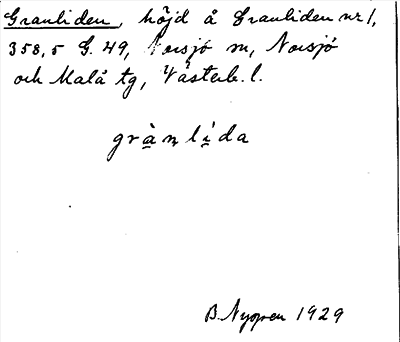 Granliden, höjd å Granliden nr 1,
358,5 G. 49, Norsjö sn, Norsjö
och Malå tg, Västerb. l.
grànlìda
B. Nygren 1929